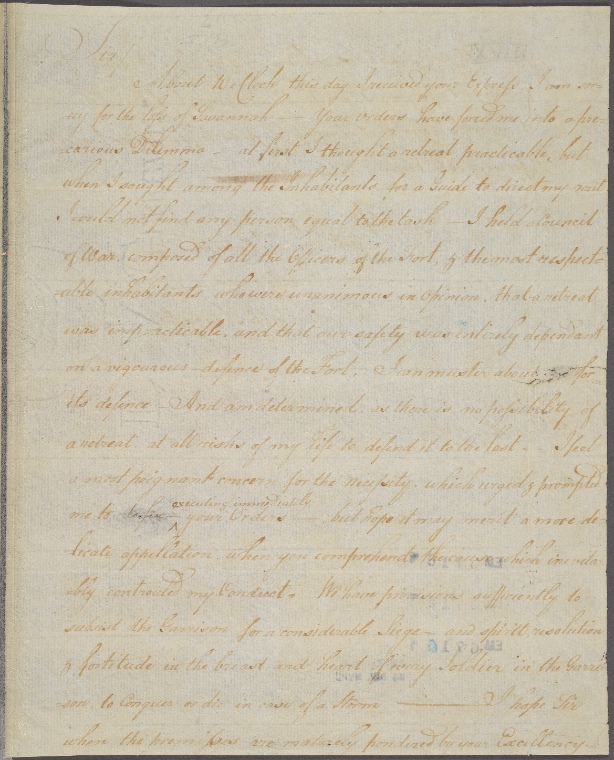 Sir/
About 10 oClock this day I received your Express I am sor-
ry for the loss of Savannah — Your Orders have forced me into a pre-
carious Dilemma — at first I thought a retreat practicable, but
when I sought among the Inhabitants for a Guide to direct my rout
I could not find any person equal to the task — I held a Council
of War, composed of all the Officers of the Fort, & the most respect-
able inhabitants who were unanimous in Opinion, that a retreat
was impracticable, and that our safety was entirely dependant
on a vigourous defence of the Fort. I can muster about for
its defence — And am determined, as there is no possibility of
a retreat, at all risks of my life to defend it to the last. I feel
a most poignant concern for the necessity which urged & prompted
executing immediately
me to your Orders — but hope it may merit a more de
licate appellation, when you comprehend the which inevita-
bly controuled my Conduct. We have provisions sufficiently to
subsist the Garrison for a considerable Siege — and spirit, resolution
& fortitude in the breast and heart of every Soldier in the Garri
son, to Conquer or die in case of a Storm — I hope Sir
when the premisses are maturely pondered by your Excellency